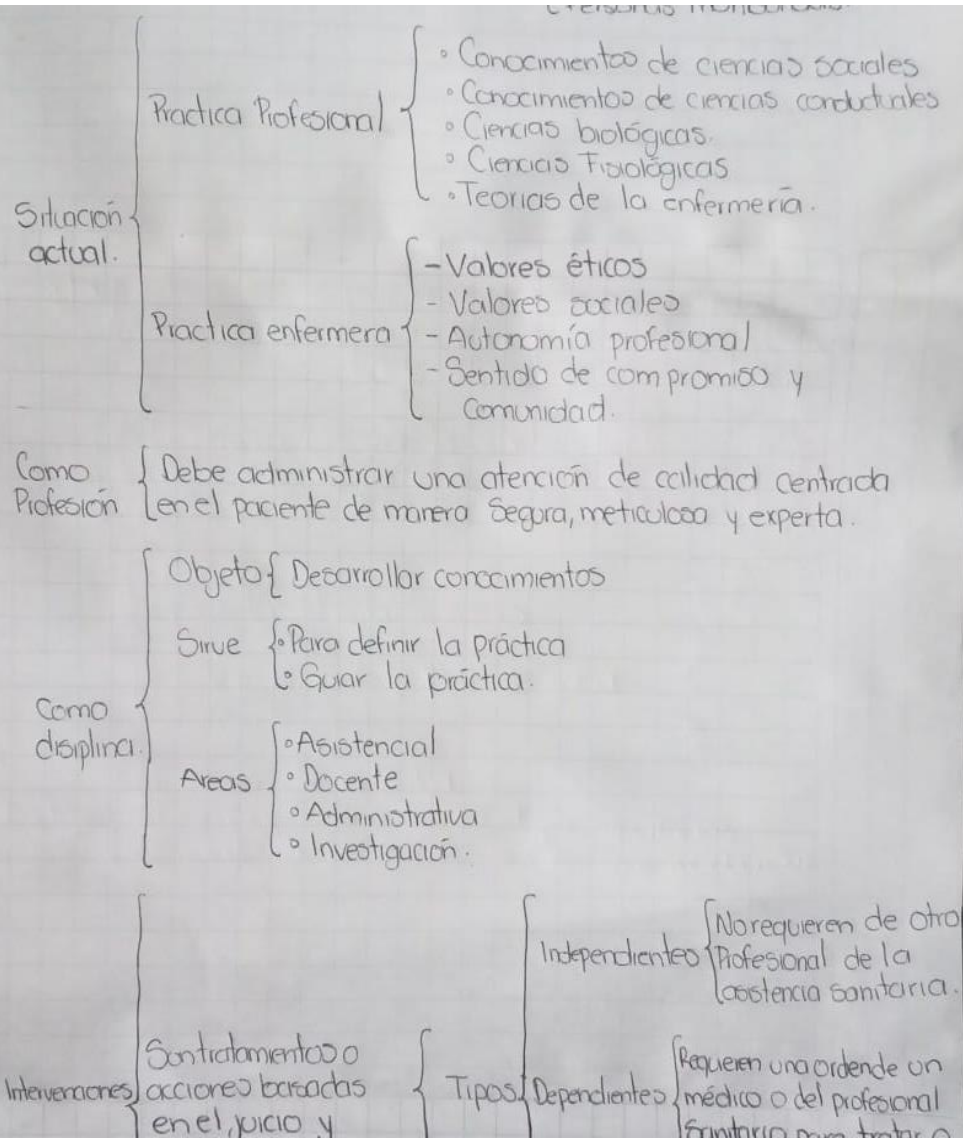 Practica Profesional
• Conocimientos de ciencias sociales
• Conocimientos de ciencias conductuales
• Ciencias biológicas.
• Ciencias Fisiológicas
• Teorias de la enfermería.
Situación
actual.
Practica enfermera
- Valores éticos
- Valores sociales
- Autonomía profesional
- Sentido de compromiso y
Comunidad.
Como
Profesión
Debe administrar una atención de calidad centrada
en el paciente de manera segura, meticulosa y experta.
Como
disiplina.
Objeto { Desarrollar conocimientos
Sirve
• Para definir la práctica
• Guiar la práctica.
Areas
• Asistencial
• Docente
• Administrativa
• Investigación.
Intervenciones
Son tratamientos o
acciones basadas
en el juicio y
Tipos
Independientes
No requieren de otro
Profesional de la
asistencia sanitaria.
Dependientes
Requieren una orden de un
médico o del profesional
Sanitario para tratar o